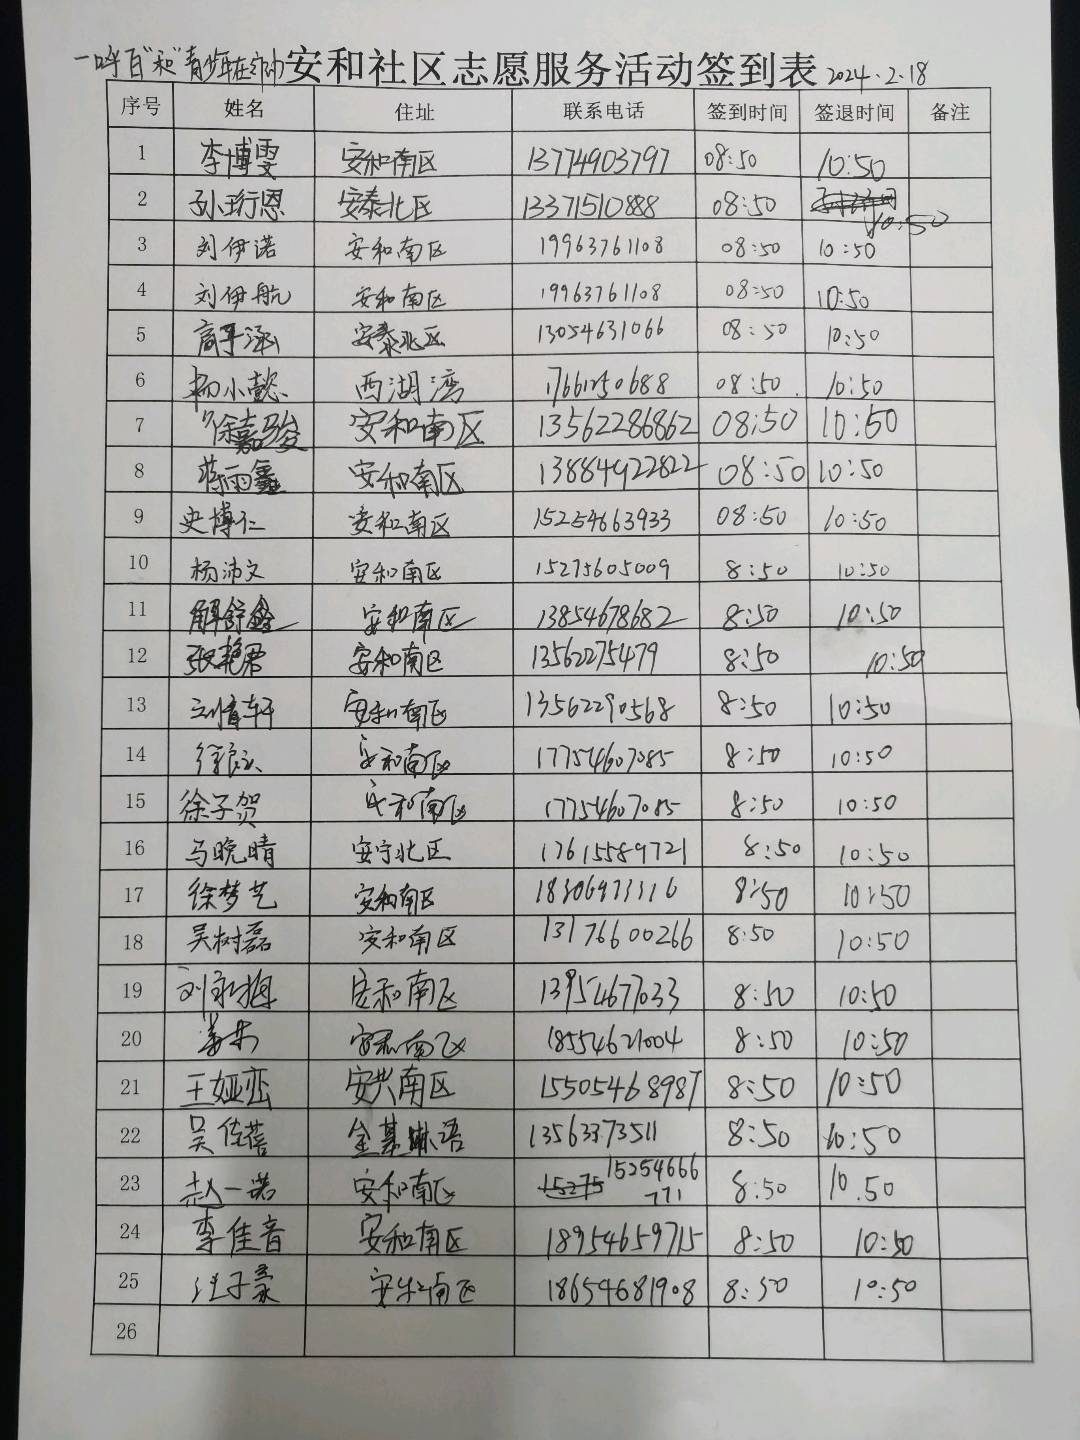 一呼百"和"青少年在行动 安和社区志愿服务活动签到表 2024.2.18
序号 姓名 住址 联系电话 签到时间 签退时间 备注
1 李博雯 安和南区 13774903797 08:50 10:50
2 孙珩恩 安泰北区 13371510888 08:50 10:50
3 刘伊诺 安和南区 19963761108 08:50 10:50
4 刘伊航 安和南区 19963761108 08:50 10:50
5 安泰北区 13054631066 08:50 10:50
6 杨小懿 西湖湾 17661250688 08:50 10:50
7 徐嘉骏 安和南区 13562286862 08:50 10:50
8 蒋雨鑫 安和南区 13884922822 08:50 10:50
9 史博仁 安和南区 15254663933 08:50 10:50
10 杨沛文 安和南区 15275605009 8:50 10:50
11 解舒鑫 安和南区 13854678682 8:50 10:50
12 张艳君 安和南区 13562275479 8:50 10:50
13 安和南区 13562290568 8:50 10:50
14 安和南区 17754607085 8:50 10:50
15 徐子贺 安和南区 17754607085 8:50 10:50
16 马晚晴 安宁北区 17615589721 8:50 10:50
17 徐梦艺 安和南区 8:50 10:50
18 吴树磊 安和南区 13176600266 8:50 10:50
19 刘永梅 安和南区 13954677033 8:50 10:50
20 安和南区 18554621004 8:50 10:50
21 王娅峦 安兴南区 15505468987 8:50 10:50
22 吴佐蓓 金基琳语 13563373511 8:50 10:50
23 赵一诺 安和南区 15254666771 8:50 10.50
24 李佳音 安和南区 18954659715 8:50 10:50
25 汪子豪 安和南区 18654681908 8:50 10:50
26